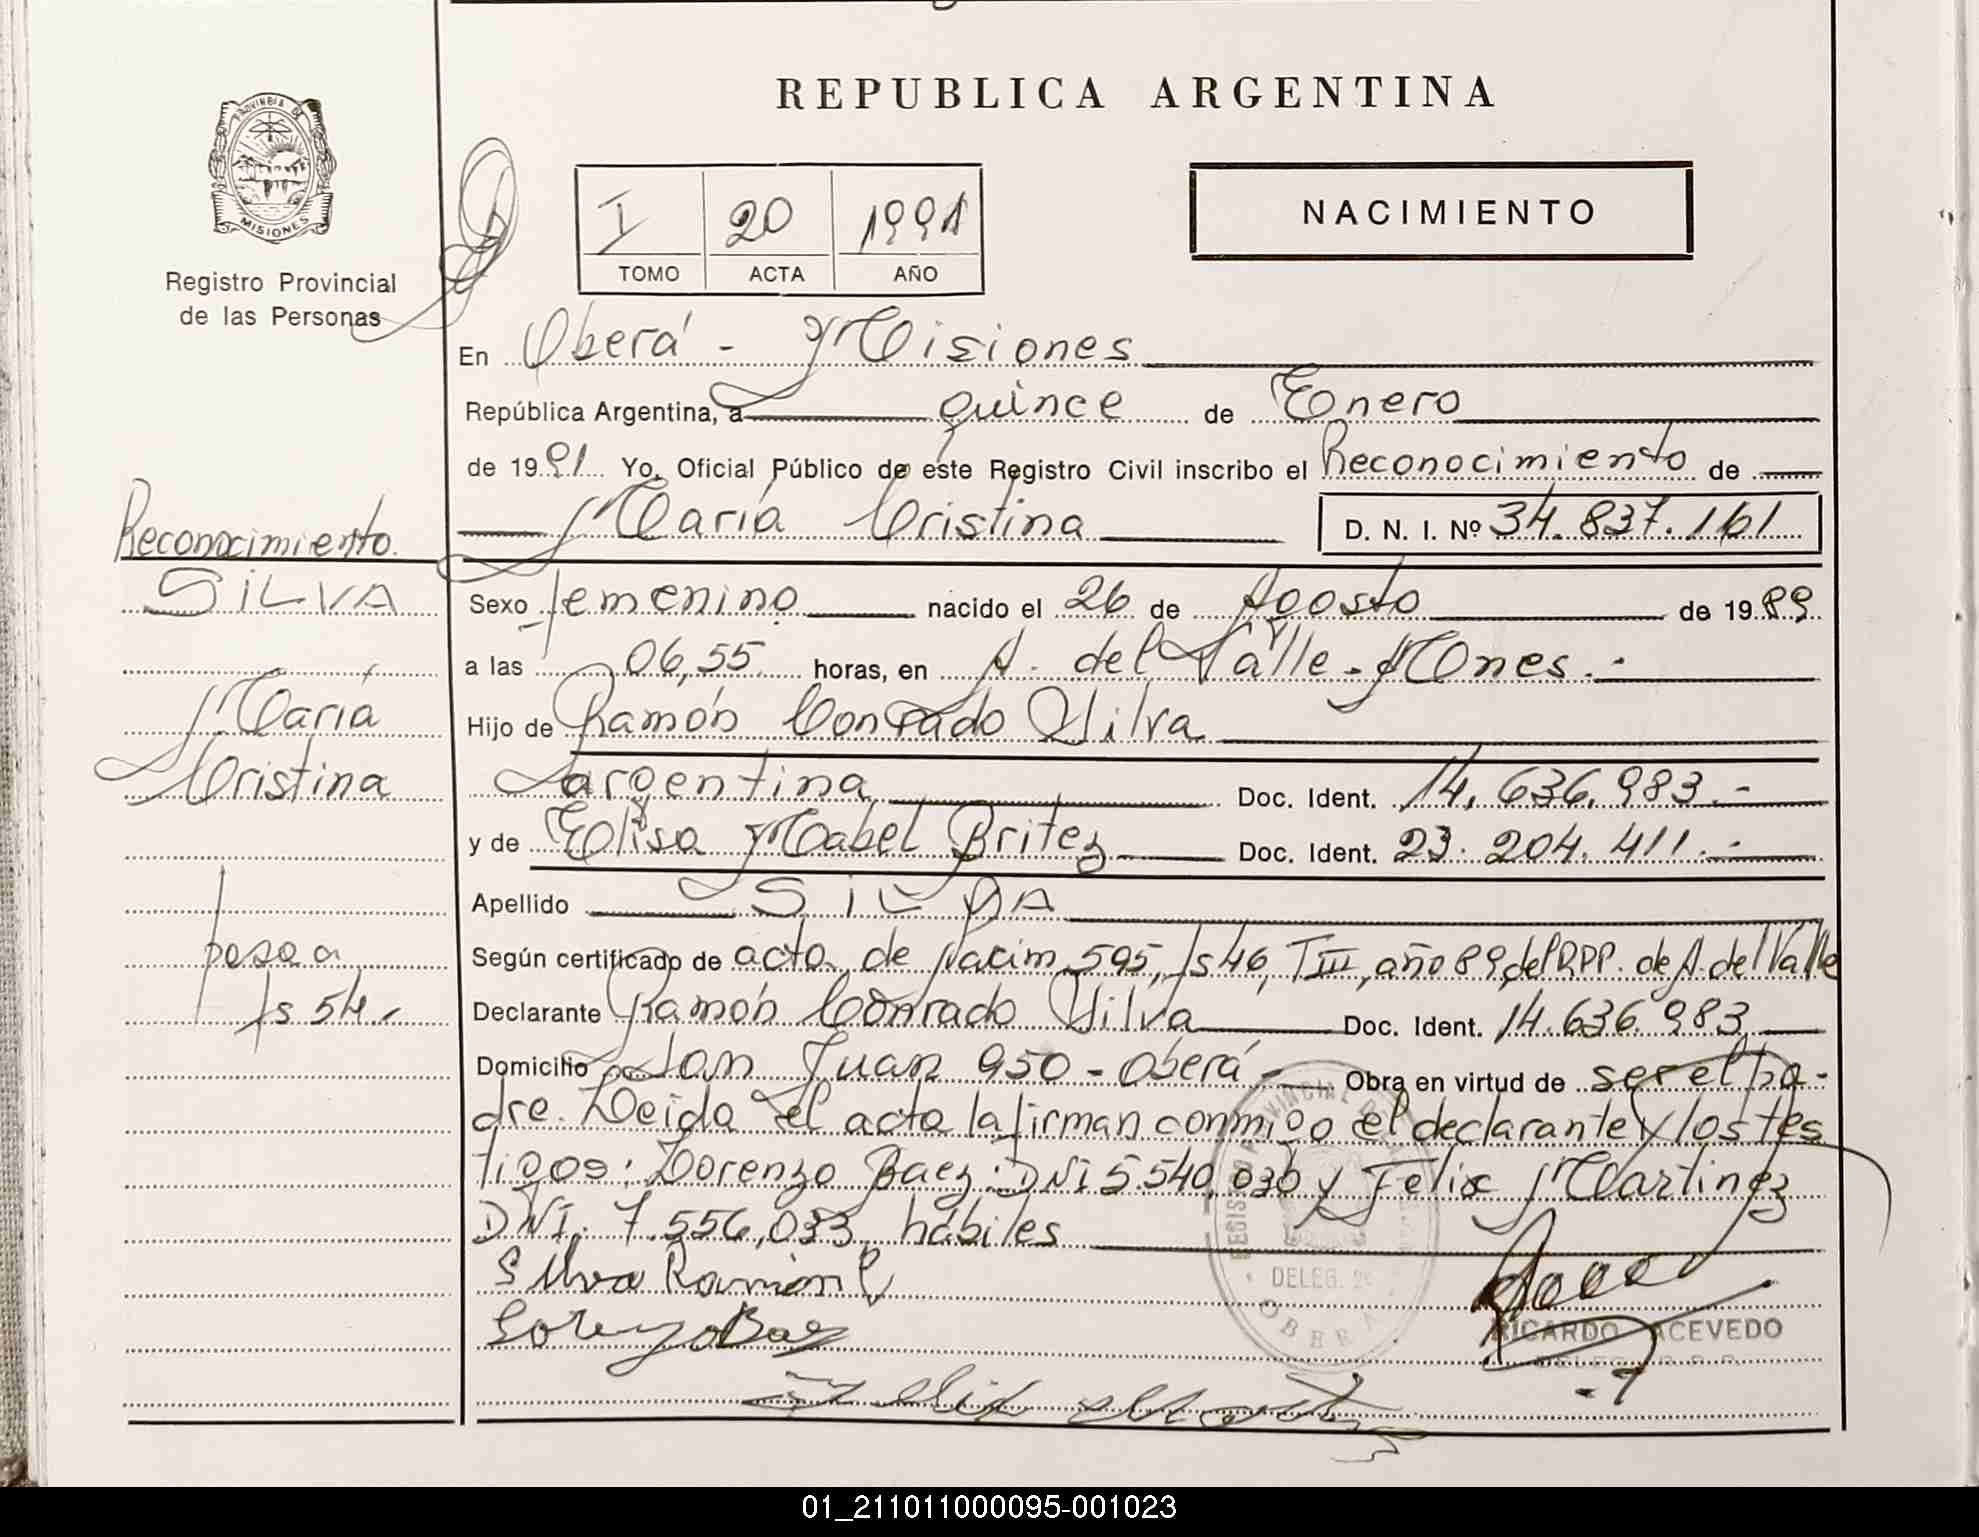 REPUBLICA ARGENTINA
PROVINCIA DE
MISIONES
Registro Provincial
de las Personas
I 20 1991
TOMO ACTA AÑO
NACIMIENTO
En Oberá - Misiones
República Argentina, a quince de Enero
de 1991 Yo, Oficial Público de este Registro Civil inscribo el Reconocimiento de
María Cristina D. N. I. Nº 34.837.161
Reconocimiento.
SILVA
María
Cristina
pasa a
fs 54.-
Sexo femenino nacido el 26 de Agosto de 1989
a las 06,55 horas, en A. del Valle - Mnes.-
Hijo de Ramón Conrado Silva
argentina Doc. Ident. 14.636.983.-
y de Elisa Mabel Britez Doc. Ident. 23.204.411.-
Apellido SILVA
Según certificado de acta de Nacim 595, fs 46, T III, año 89, del RPP. de A. del Valle
Declarante Ramón Conrado Silva Doc. Ident. 14.636.983
Domicilio San Juan 950 - Oberá - Obra en virtud de ser el pa-
dre. Leida el acta la firman conmigo el declarante y los tes
tigos: Lorenzo Baez. DNI 5.540,036 y Felix Martinez
DNI. 7.556,033, hábiles
Silva Ramon C
Lorenzo Baez
DELEG.
OBERA
RICARDO ACEVEDO
01_211011000095-001023